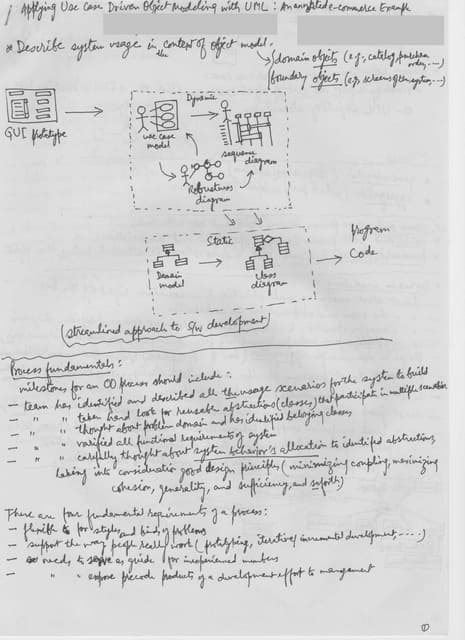 Applying Use Case Driven Object Modeling with UML : An annotated e-commerce Example
* Describe system usage in the context of object model.
domain objects (e.g., catalog, purchase order, ...)
boundary objects (e.g., screens of the system, ...)
Dynamic
GUI prototype
use case model
sequence diagram
Robustness diagram
Static
Domain model
class diagram
Program Code
(streamlined approach to S/W development)
Process fundamentals :
milestones for an OO process should include :
— team has identified and described all the usage scenarios for the system to build
— " " taken hard look for reusable abstractions (classes) that participate in multiple scenarios
— " " thought about problem domain and has identified belonging classes
— " " varified all functional requirements of system
— " " carefully thought about system behavior's allocation to identified abstractions,
taking into consideration good design principles (minimizing coupling, maximizing
cohesion, generality, and sufficiency, and so forth)
There are four fundamental requirements of a process :
— flexible to for styles and kinds of problems
— support the way people really work (prototyping, iterative/incremental development, ....)
— needs to serve as guide for inexperienced members
— " " expose precode products of a development effort to management
①